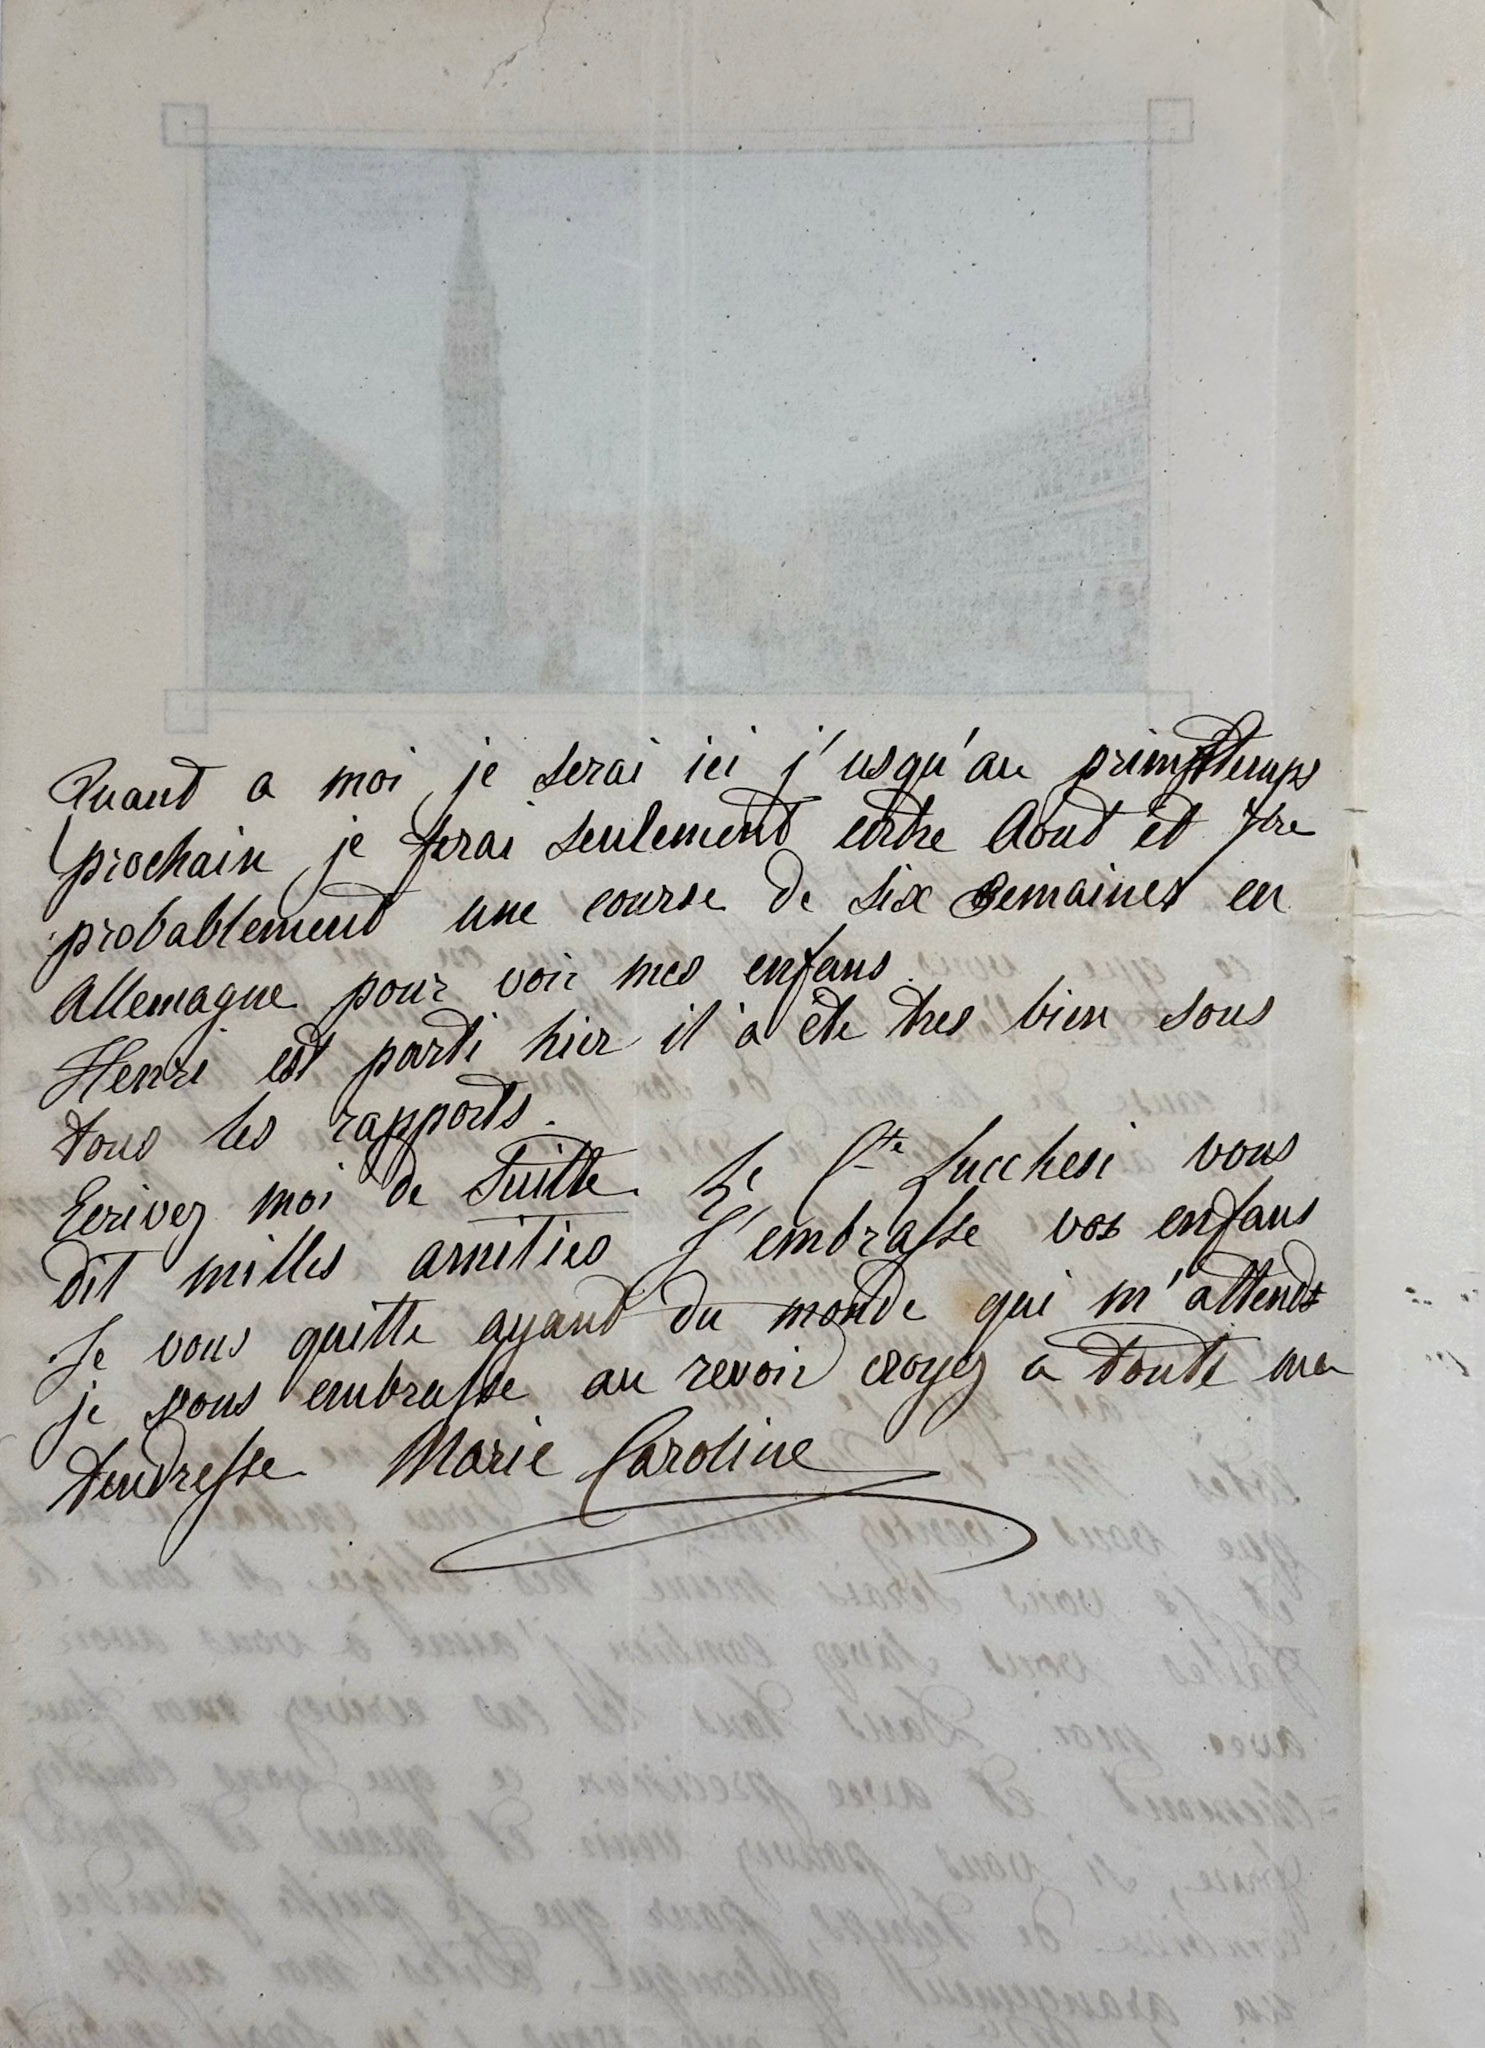 Quant a moi je serai ici j'usqu'au primptemps
prochain je ferai seulement entre Aout et 7bre
probablement une course de six semaines en
Allemagne pour voir mes enfans.
Henri est parti hier il a été tres bien sous
tous les rapports.
Ecrivez moi de suitte. Le Cte Lucchesi vous
dit milles amitiés J'embrasse vos enfans
Je vous quitte ayant du monde qui m'attends
je vous embrasse au revoir croyez a toute ma
tendresse Marie Caroline